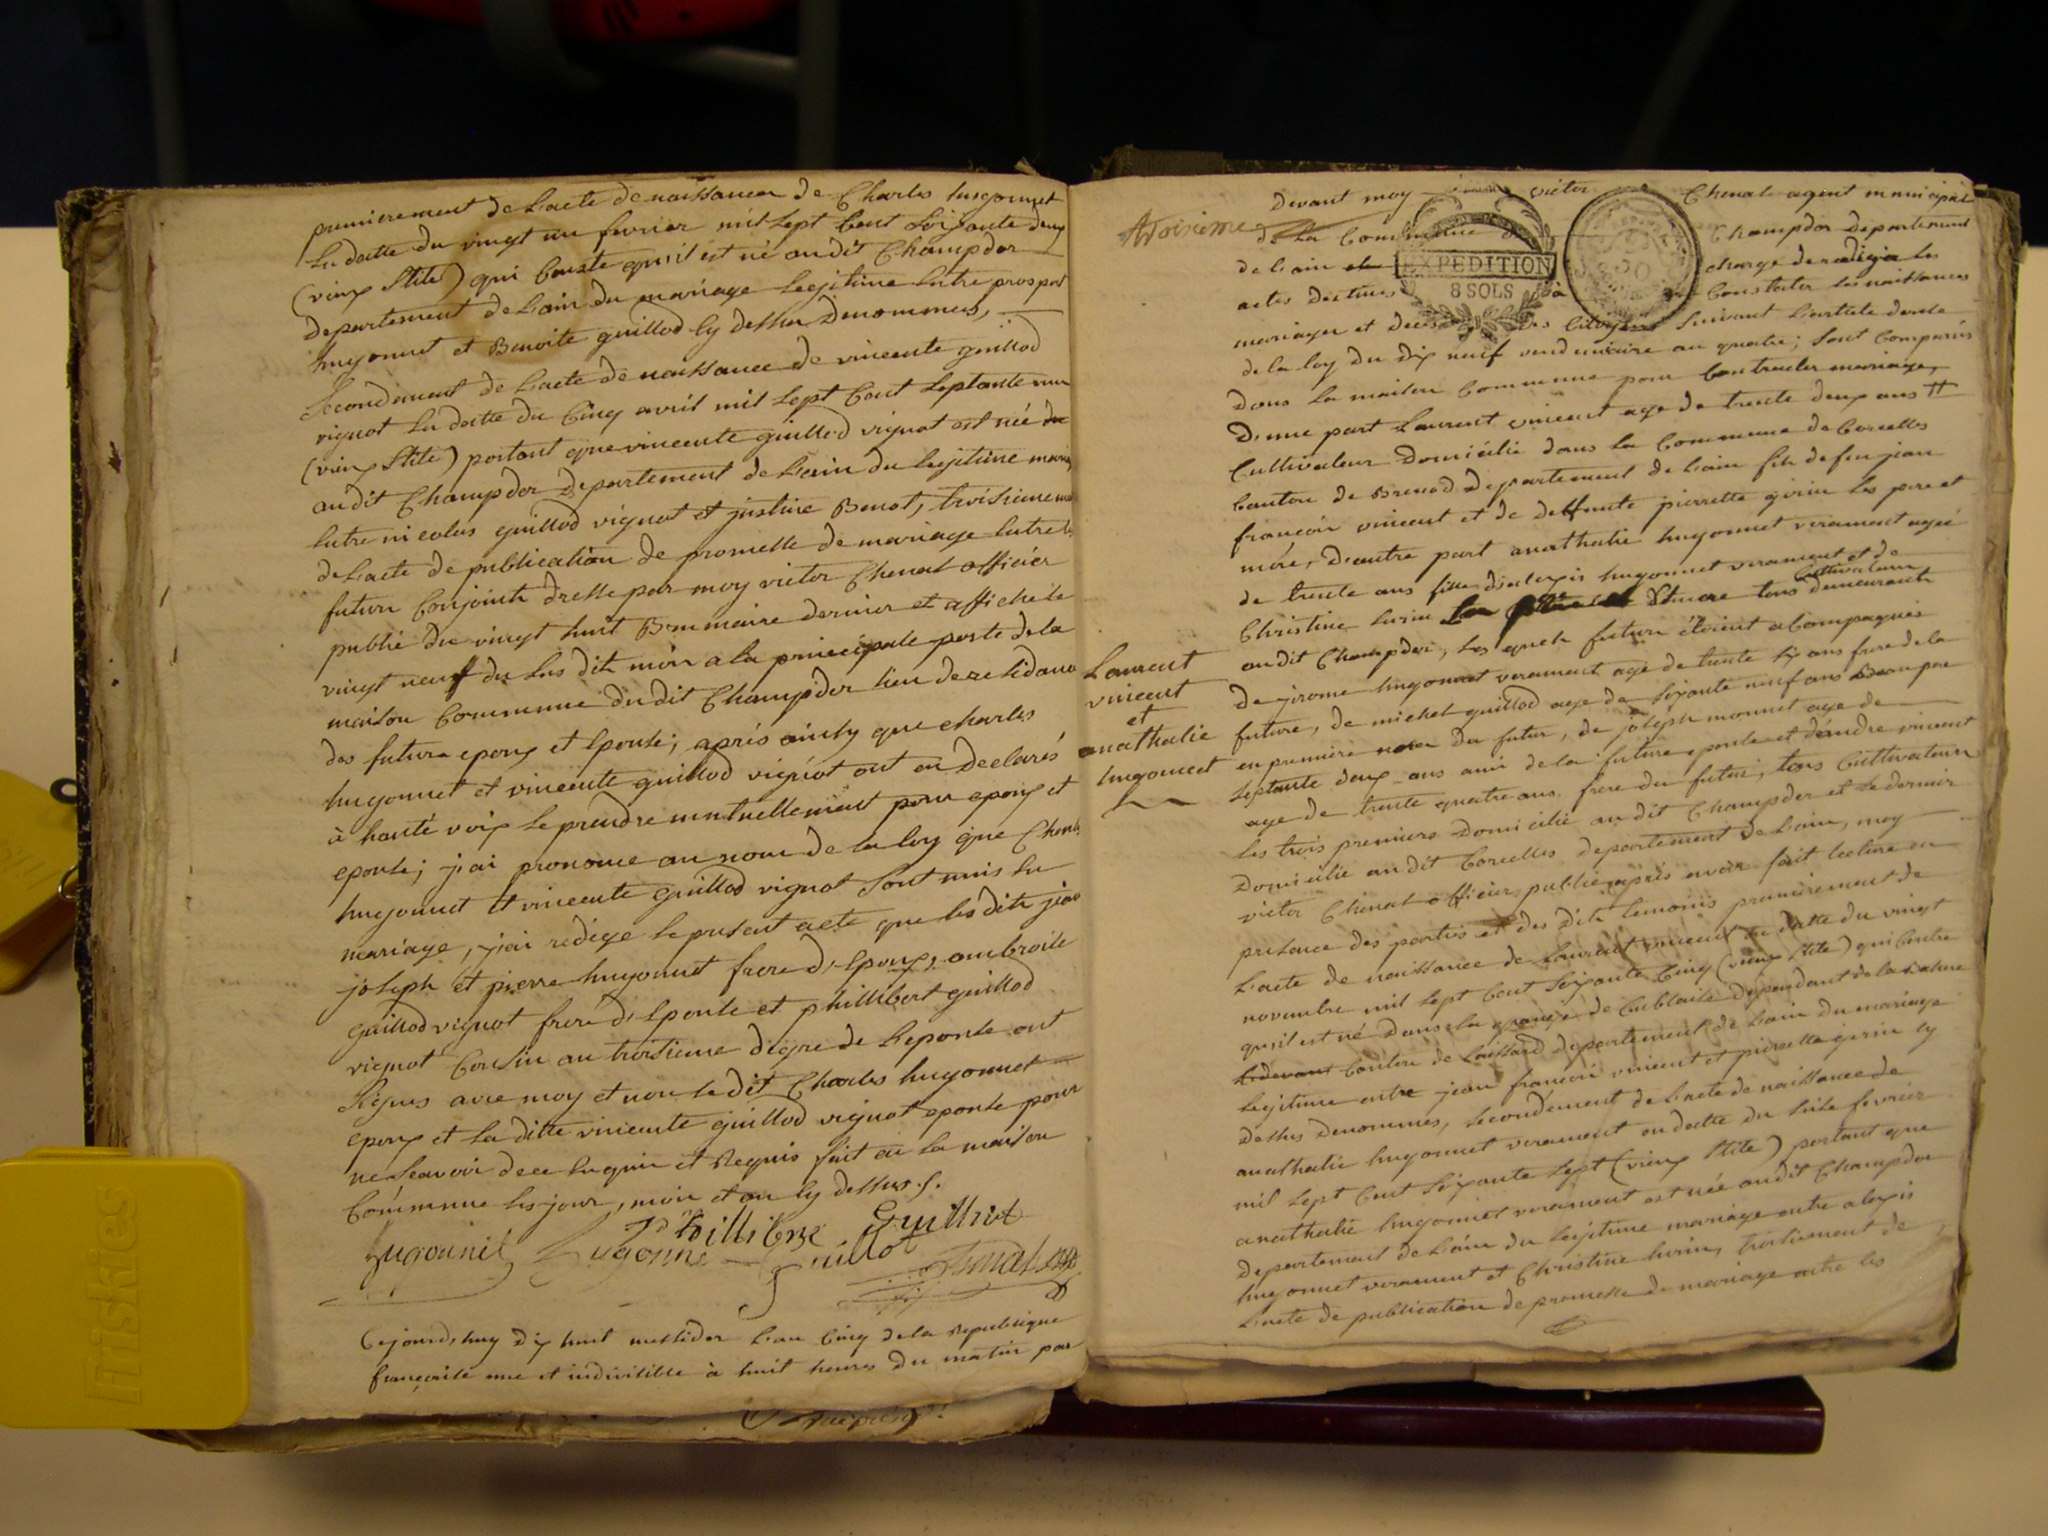 premierement de l'acte de naissance de Charles hugonnet
en datte du vingt un fevrier mil sept Cent soixante deux
(vieux stile) qui Conste qu'il est né au dit Champdor
departement de l'ain du mariage legitime entre prosper
hugonnet et Benoite guillod cy dessus denommés,
secondement de l'acte de naissance de vincente guillod
vignot en datte du Cinq avril mil sept Cent septante un
(vieux stile) portant que vincente guillod vignot est née
au dit Champdor departement de l'ain du legitime mariage
entre nicolas guillod vignot et justine Benot, troisiememen
de l'acte de publication de promesse de mariage entre les
futurs Conjoints dressé par moy victor Chenal officier
public du vingt huit Brumaire dernier et affiché le
vingt neuf du sus dit mois a la principale porte de la
maison Commune du dit Champdor lieu de residance
des futurs epoux et epouse; après ainsy que charles
hugonnet et vincente guillod vignot ont eu declarés
à haute voix se prendre mutuellement pour epoux et
epouse; j'ai prononcé au nom de la loy que Charles
hugonnet et vincente guillod vignot sont unis en
mariage, j'ai redigé le present acte que les dits jean
joseph et pierre hugonnet frere d'epoux, ambroise
guillod vignot frere d'epouse et phillibert guillod
vignot Cousin au troisieme degré de l'epouse ont
signés avec moy et non le dit Charles hugonnet
epoux et la ditte vincente guillod vignot epouse pour
ne sçavoir de ce enquis et Requis fait en la maison
Commune les jour, mois et an cy dessus.
hugonnet hugonne phillibert guillot guilliot
Cejourd'huy dix huit messidor l'an Cinq de la Republique
françoise une et indivisible à huit heures du matin par
troisieme
devant moy victor Chenal agent municipal
de la Commune de Champdor departement
de l'ain chargé de rediger les
EXPEDITION
8 SOLS
actes destinés à Constater les naissances
mariages et decés des Citoyens suivant l'article douze
de la loy du dix neuf vendemiaire an quatre; sont Comparus
dans la maison Commune pour Contracter mariage,
d'une part Laurent vincent age de trente deux ans
Cultivateur domicilié dans la Commune de Corcelles
Canton de Brenod departement de l'ain fils de feu jean
françois vincent et de deffunte pierrette girin les pere et
mére, d'autre part anathalie hugonnet verament agée
de trente ans fille d'alexis hugonnet verament et de
Cultivateurs
Christine surin tous demeurants
au dit Champdor, les quels futurs étoient aCompagnés
de jirome hugonnet verament age de trente six ans frere de la
future, de michel guillod age de soixante neuf ans Beau pere
en premiere du futur, de joseph monnet age de
septante deux ans ami de la future epouse et d'andre vincent
age de trente quatre ans frere du futur, tous Cultivateurs
les trois premiers domicilié au dit Champdor et le dernier
domicilié au dit Corcelles departement de l'ain, moy
victor Chenal officier public après avoir fait lecture en
presence des parties et des dits temoins premièrement de
l'acte de naissance de Laurent vincent en datte du vingt
novembre mil sept Cent soixante Cinq (vieux stile) qui Conste
qu'il est né dans la grange de Cublaise dependant de la
Canton de departement de l'ain du mariage
legitime entre jean françois vincent et pierrette girin cy
dessus denommés, secondement de l'acte de naissance de
anathalie hugonnet verament en datte du seize fevrier
mil sept Cent soixante sept (vieux stile) portant que
anathalie hugonnet verament est née au dit Champdor
departement de l'ain du legitime mariage entre alexis
hugonnet verament et Christine surin, troisiement de
l'acte de publication de promesse de mariage entre les
Laurent
vincent
et
anathalie
hugonnet
friskies